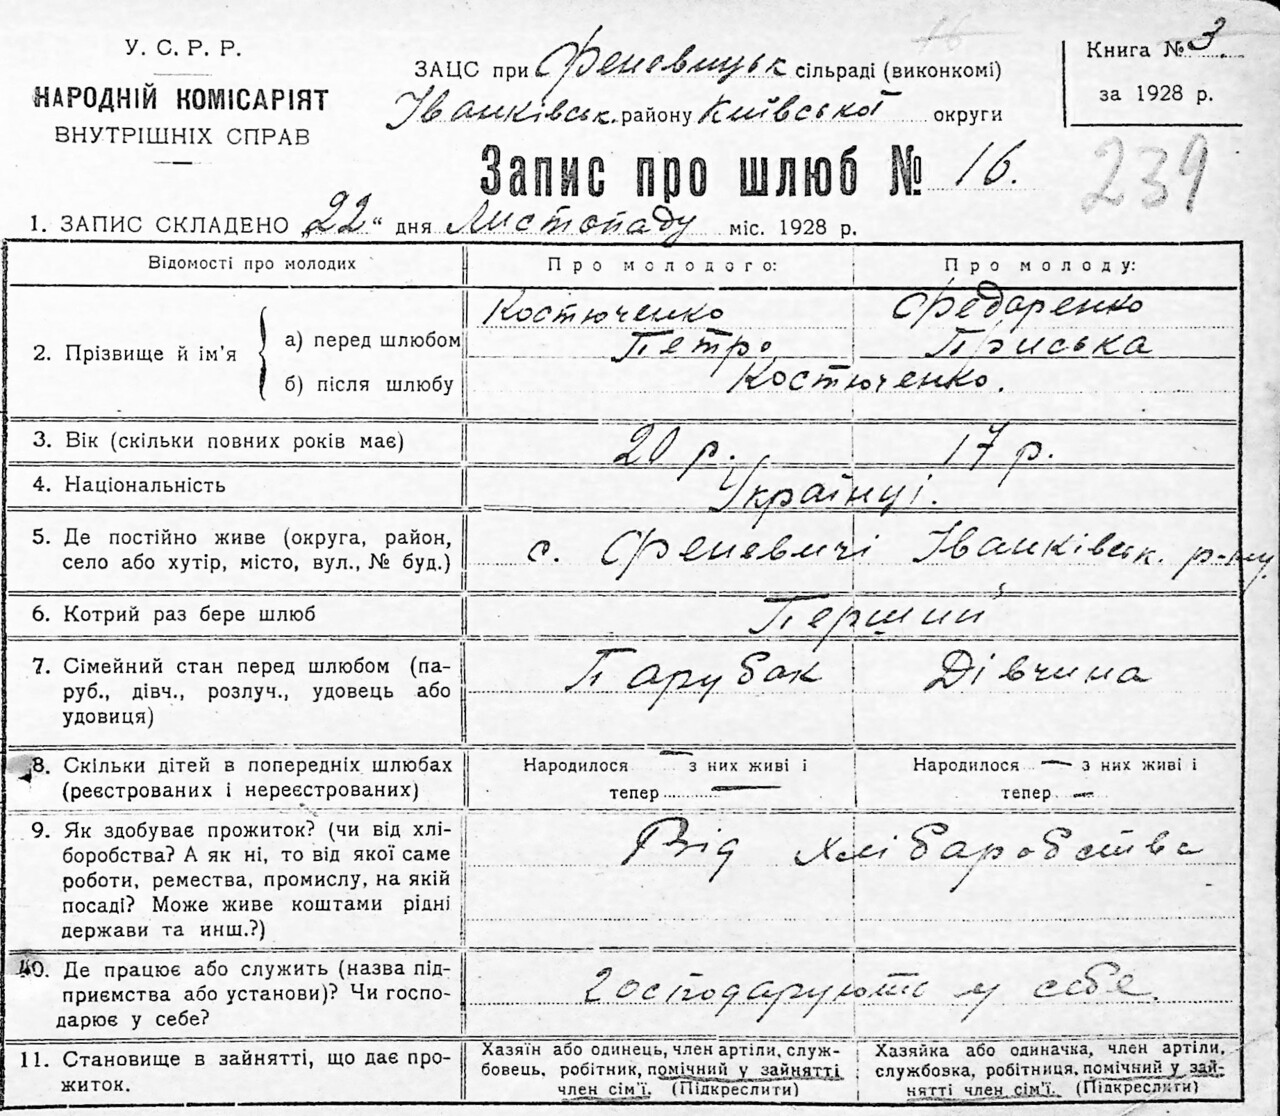 У. С. Р. Р.
НАРОДНІЙ КОМІСАРІЯТ
ВНУТРІШНІХ СПРАВ
ЗАЦС при Феневицьк сільраді (виконкомі)
Іванківськ. району Київської округи
Книга № 3
за 1928 р.
Запис про шлюб № 16.
239
1. ЗАПИС СКЛАДЕНО „22“ дня Листопаду міс. 1928 р.
Відомості про молодих
Про молодого:
Про молоду:
2. Прізвище й ім'я
а) перед шлюбом
б) після шлюбу
Костюченко Федаренко
Петро Приська
Костюченко.
3. Вік (скільки повних років має)
20 р. 17 р.
4. Національність
Українці.
5. Де постійно живе (округа, район,
село або хутір, місто, вул., № буд.)
с. Феневичі Іванківськ. р-ну.
6. Котрий раз бере шлюб
Перший
7. Сімейний стан перед шлюбом (па-
руб., дівч., розлуч., удовець або
удовиця)
Парубок Дівчина
8. Скільки дітей в попередніх шлюбах
(реєстрованих і нереєстрованих)
Народилося — з них живі і
тепер —
Народилося — з них живі і
тепер —
9. Як здобуває прожиток? (чи від хлі-
боробства? А як ні, то від якої саме
роботи, ремества, промислу, на якій
посаді? Може живе коштами рідні
держави та инш.?)
Від хлібаробства
10. Де працює або служить (назва під-
приємства або установи)? Чи госпо-
дарює у себе?
Господарують у себе.
11. Становище в зайнятті, що дає про-
житок.
Хазяїн або одинець, член артілі, служ-
бовець, робітник, помічний у зайнятті
член сім'ї. (Підкреслити)
Хазяйка або одиначка, член артіли,
службовка, робітниця, помічний у зай-
нятті член сім'ї. (Підкреслити)